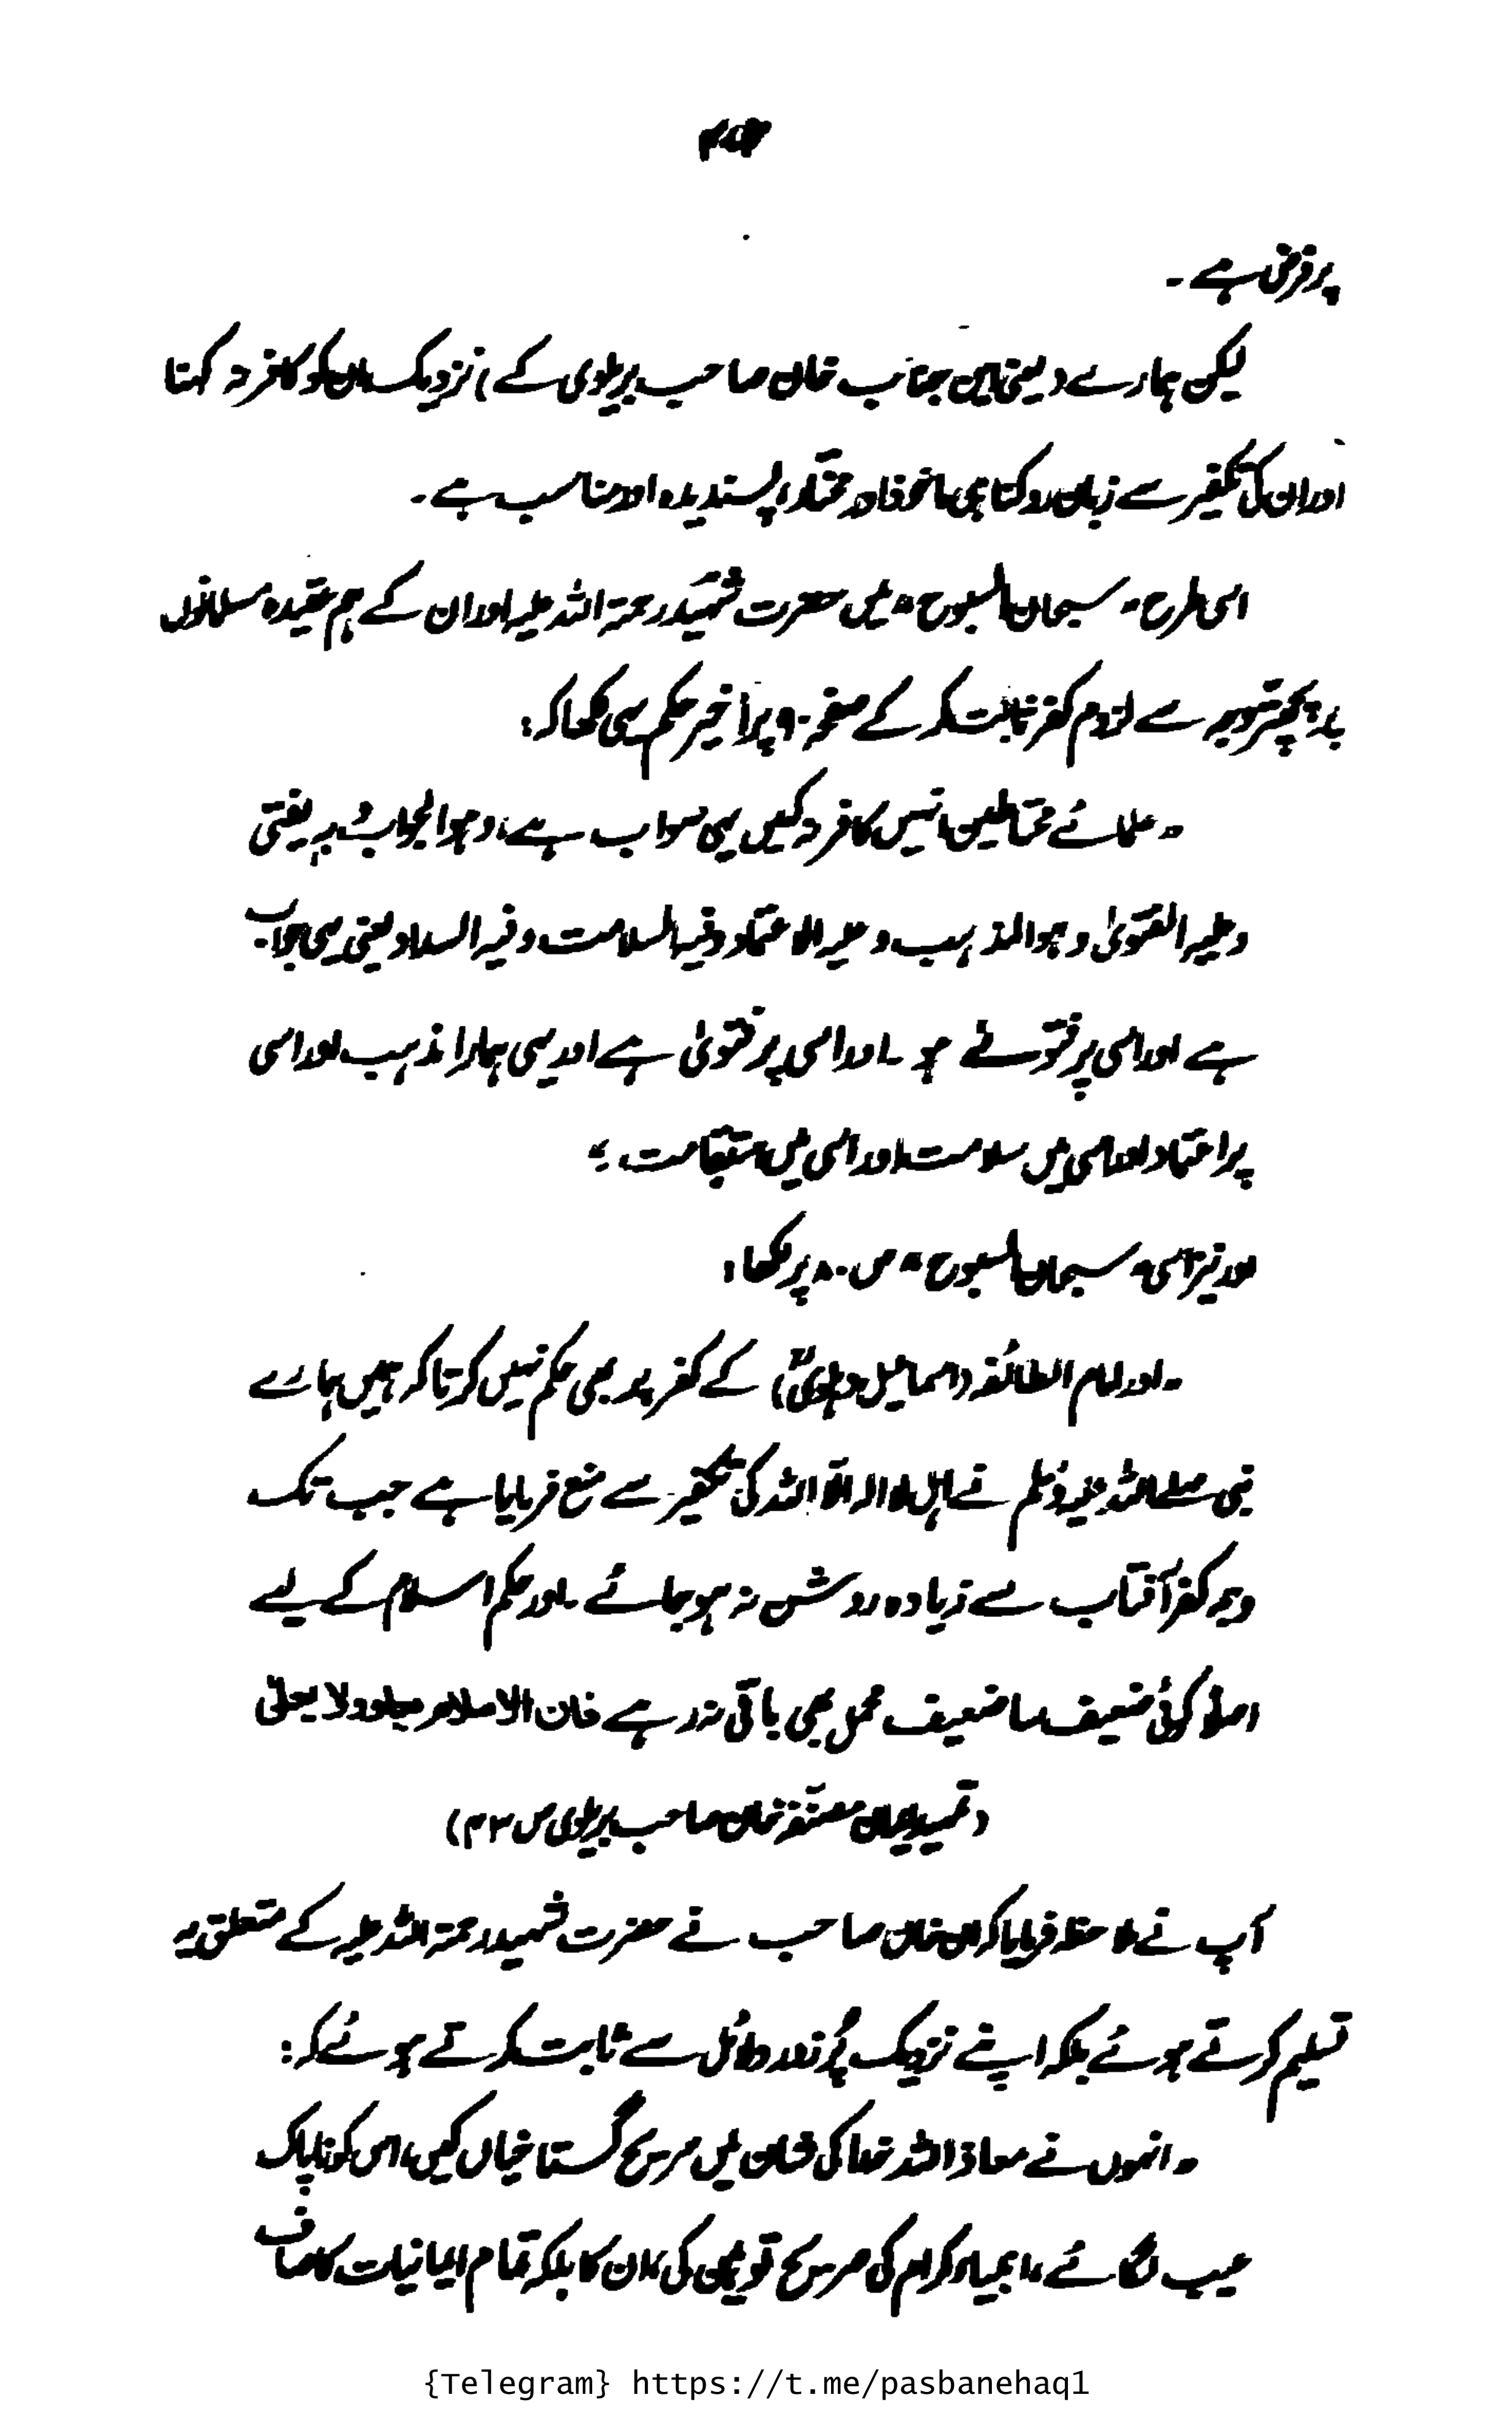 پر فرض ہے ۔
لیکن ہمارے (یعنی ہمیں جناب خان صاحب بریلوی کے) نزدیک ان کو کافر نہ کہنا
اور ان کی تکفیر سے زبان روکنا ہی ماخوذ اور مختار، پسندیدہ اور مناسب ہے ۔
اسی طرح "سبحان السبوح" میں حضرت شہید رحمۃ اللہ علیہ اور ان کے ہم عقیدہ مسلمانوں
پر پچھتر وجہ سے لزوم کفر ثابت کر کے صفحہ ۹۰ پر اخیر حکم یہی لکھا کہ :
"علمائے محتاطین انہیں کافر نہ کہیں یہی صواب ہے، وهو الجواب وبہ یفتی
وعلیہ الفتویٰ وهو المذہب وعلیہ الاعتماد وفیہ السلامت وفیہ السداد یعنی یہی جواب
ہے اور اسی پر فتوے ہو ۔ اور اسی پر فتویٰ ہے اور یہی ہمارا مذہب اور اسی
پر اعتماد اور اسی میں سلامت اور اسی میں استقامت ؛"
اور نیز اسی "سبحان السبوح" ص ۸۰ پر لکھا :
"اور امام الطائفہ (اسماعیل دہلویؒ) کے کفر پر بھی حکم نہیں کرتا کہ ہمیں ہمارے
نبی صلے اللہ علیہ وسلم نے اہل لا الہ الا اللہ کی تکفیر سے منع فرمایا ہے جب تک
وجہ کفر آفتاب سے زیادہ روشن نہ ہو جائے ۔ اور حکم اسلام کے لیے
اصلاً کوئی ضعیف سا ضعیف محمل بھی باقی نہ رہے فان الاسلام یعلو ولا یعلیٰ
(تمہید ایمان مصنفہ خان صاحب بریلوی ص ۴۳)
آپ نے ملاحظہ فرمایا کہ ان خان صاحب نے حضرت شہید رحمۃ اللہ علیہ کے متعلق یہ
تسلیم کرتے ہوئے بلکہ اپنے نزدیک پُر زور دلائل سے ثابت کرتے ہوئے کہ :
"انہوں نے معاذ اللہ خدا کی شان میں صریح گستاخیاں کیں، اس کو ناپاک
عیب لگائے، انبیاء کرام کی صریح توہین کی، ان کا بلکہ تمام ایمانیات کا صاف
{Telegram} https://t.me/pasbanehaq1